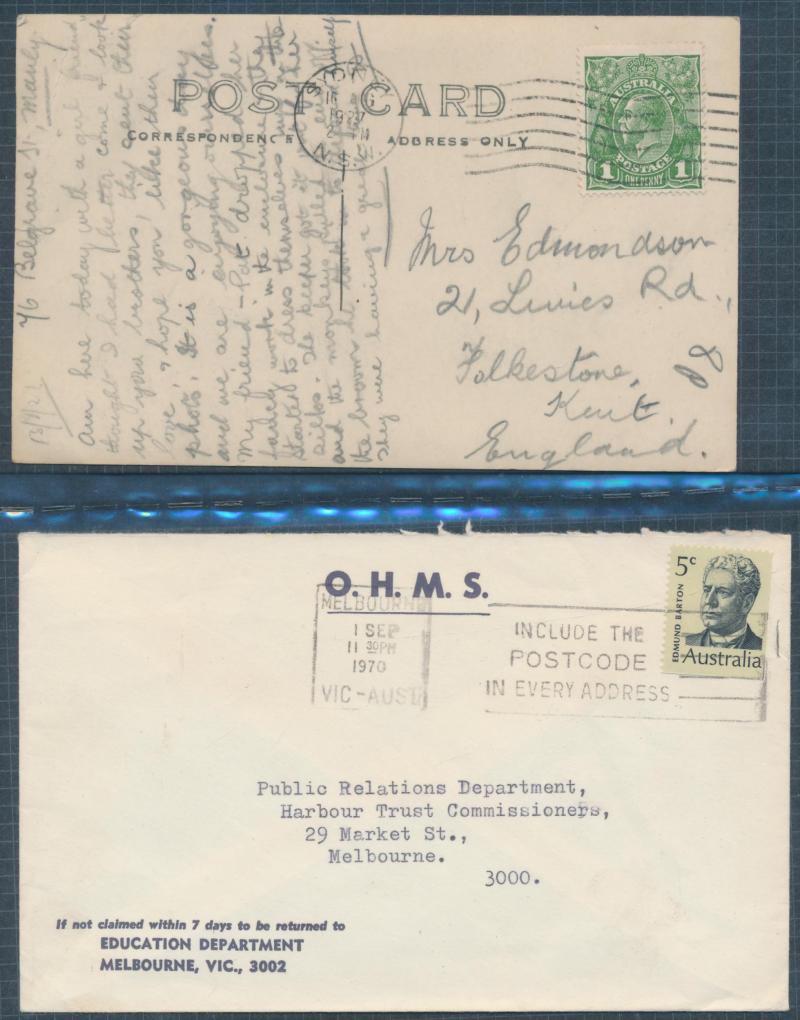 POST CARD
CORRESPONDENCE
ADDRESS ONLY
AUSTRALIA
POSTAGE
1 ONE PENNY 1
76 Belgrave St, Manly.
Am here today with a girl friend
thought I had better come & look
up your brothers, they sent their
love, & hope you like their
photo. It is a gorgeous day
and we are enjoying ourselves.
My friend Pat dropped her
fancy work in the enclosure they
started to dress themselves with the
silks. The keeper got it
and the monkeys
the broom he
they were having a great
Mrs Edmondson
21, Rd.,
Folkestone,
Kent.
England.
O. H. M. S.
MELBOURNE
1 SEP
11 30PM
1970
VIC-AUST
INCLUDE THE
POSTCODE
IN EVERY ADDRESS
5c
EDMUND BARTON
Australia
Public Relations Department,
Harbour Trust Commissioners,
29 Market St.,
Melbourne.
3000.
If not claimed within 7 days to be returned to
EDUCATION DEPARTMENT
MELBOURNE, VIC., 3002